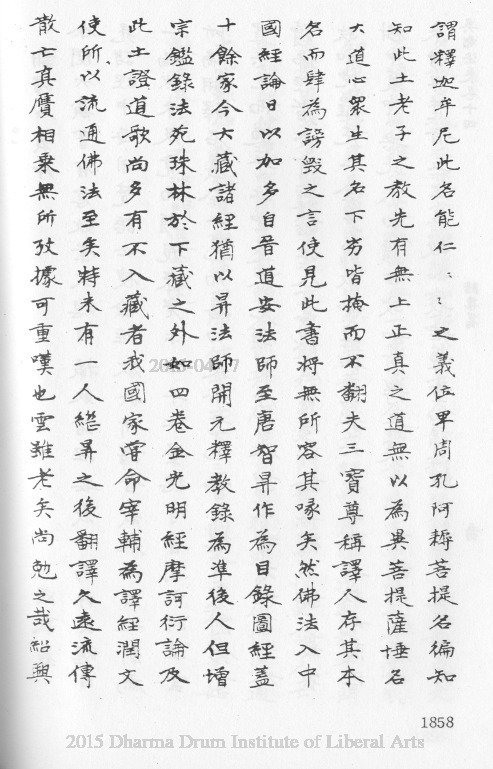 謂釋迦牟尼此名能仁〻〻之義位卑周孔阿耨菩提名徧知
知此土老子之教先有無上正真之道無以為異菩提薩埵名
大道心衆生其名下劣皆掩而不翻夫三寳尊稱譯人存其本
名而肆為謗毀之言使見此書將無所容其喙矣然佛法入中
國經論日以加多自晉道安法師至唐智昇作為目錄圖經蓋
十餘家今大藏諸經猶以昇法師開元釋教錄為準後人但增
宗鑑錄法苑珠林於下藏之外如四卷金光明經摩訶衍論及
此土證道歌尚多有不入藏者我國家嘗命宰輔為譯經潤文
使所以流通佛法至矣特未有一人繼昇之後翻譯久遠流傳
散亡真贗相乗無所攷據可重嘆也雲雖老矣尚勉之哉紹興
1858
2015 Dharma Drum Institute of Liberal Arts